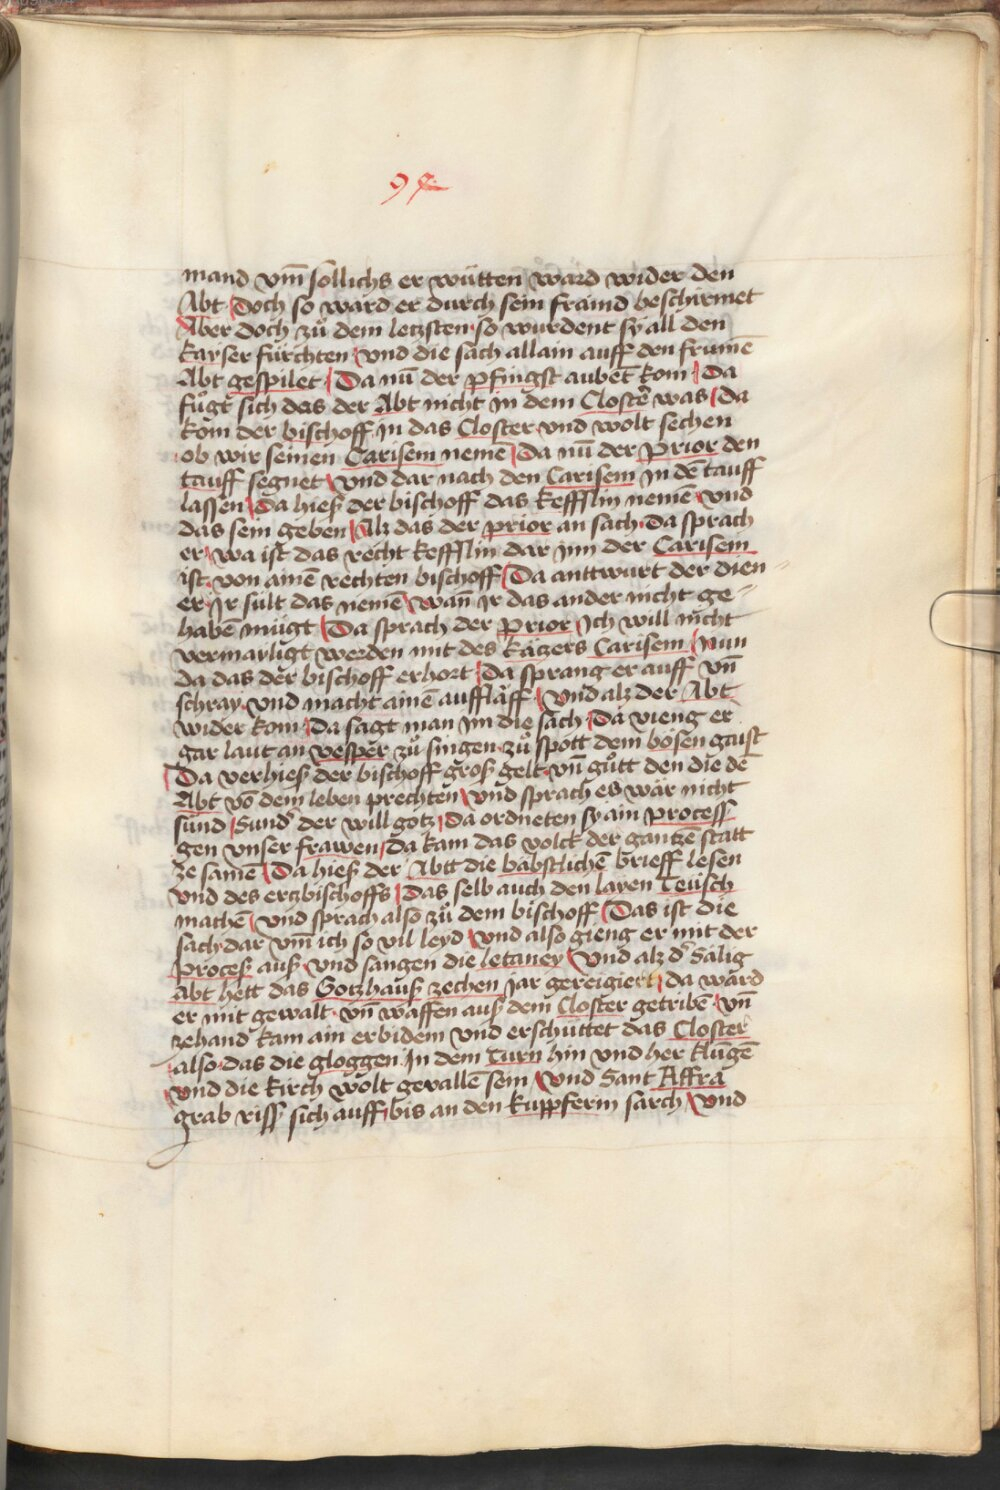 94
mand vm̄ sollichs er wütten ward wider den
Abt Doch so ward er durch sein fraind beschirmet
Aber doch zů dem letzsten so wurdent sy all den
kayser fürchten vnd die sach allain auff den frumē
Abt gespilet Da nū der pfingst aubēt kom Da
fůgt sich das der Abt nicht in dem Closter was Da
kom der bischoff in das Closter vnd wolt sechen
ob wir seinen Carisem nemē Da nū der Prior den
tauff segnet vnd dar nach den Carisem in dē tauff
lassen Da hieß der bischoff das kefflin nemē vnd
das sein geben Alz das der prior an sach Da sprach
er wa ist das recht kefflin dar jnn der Carisem
ist von ainē rechten bischoff Da anttwurt der dien
er jr sült das nemē wan̄ jr das ander nicht ge
habē mügt Da sprach der Prior Ich will nicht
vermayligt werden mit des kätzers Carisem Nun
da das der bischoff erhort Da sprang er auff vn̄
schray vnd macht ainē aufflaff vnd alz der Abt
wider kom Da sagt man im die sach Da vieng er
gar laut an vesper zů singen zů spott dem bösen gaist
Da verhieß der bischoff groß gelt vn̄ gůtt den die dē
Abt vō dem leben prechten vnd sprach es wär nicht
sünd Sund' der will gotz Da ordneten sy ain process
gen vnser frawen Da kam das volck der gantzē statt
ze samē Da hieß der Abtt die bäbstlichē brieff lesen
vnd des ertzbischoffs Das selb auch den layen Teüsch
machē vnd sprach also zů dem bischoff Das ist die
sach dar vm̄ ich so vil leyd vnd also gieng er mit der
Proceß auß vnd sangen die letaney vnd alz d' Sälig
Abt hett das Gotzhauß zechen jar gereigiert da ward
er mit gewalt vn̄ waffen auß dem Closter getribē vn̄
zehand kam ain erbidem vnd erschüttet das Closter
also das die gloggen in dem turn hin vnd her klungē
vnd die kirch wolt gevallē sein vnd Sant Affra
grab riss sich auff bis an den kupfferin sarch vnd